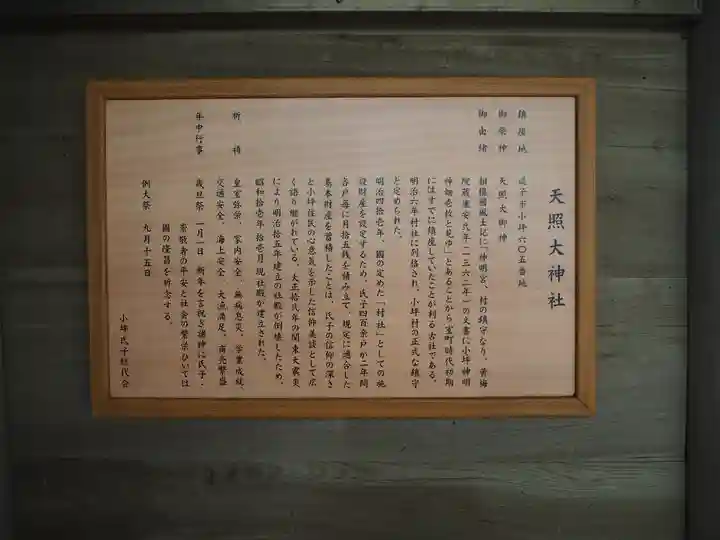 天照大神社
鎮座地 逗子市小坪六〇五番地
御祭神 天照大御神
御由緒 相模國風土記に「神明宮、村の鎮守なり、黄梅
院蔵康安元年(一三六二年)の文書に小坪神明
神畑壱枚と見ゆ」とあることから室町時代初期
にはすでに鎮座していたことが判る古社である。
明治六年村社に列格され、小坪村の正式な鎮守
と定められた。
明治四拾壱年、國の定めた「村社」としての施
設財産を設定するため、氏子四百余戸が二年間
各戸毎に月拾五銭を積み立て、規定に適合した
基本財産を蓄積したことは、氏子の信仰の深さ
と小坪住民の心意気を示した信仰美談として広
く語り継がれている。大正拾弐年の関東大震災
により明治拾五年建立の社殿が倒壊したため、
昭和拾壱年拾壱月現社殿が建立された。
祈祷 皇室弥栄、家内安全、無病息災、学業成就、
交通安全、海上安全、大漁満足、商売繁盛
年中行事 歳旦祭 一月一日 新年を言祝ぎ諸神に氏子・
崇敬者の平安と社会の繁栄ひいては
國の隆昌を祈念する。
例大祭 九月十五日
小坪氏子総代会